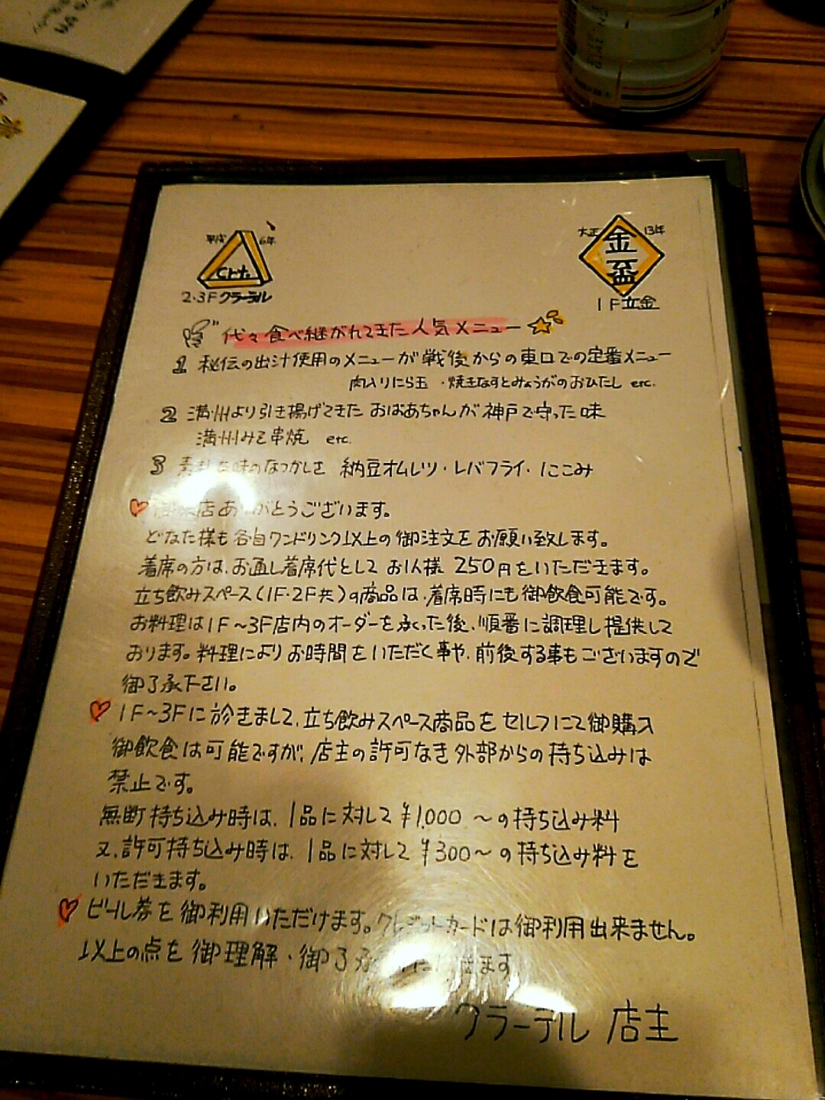 平成 6年
2・3F クラーテル
大正 13年
金盃
1F 立金
代々食べ継がれてきた人気メニュー
1 秘伝の出汁使用のメニューが戦後からの東口での定番メニュー
肉入りにら玉 ・焼きなすとみょうがのおひたし etc.
2 満州より引き揚げてきた おばあちゃんが神戸で守った味
満州みそ串焼 etc.
3 味のなつかしさ 納豆オムレツ・レバフライ・にこみ
店ありがとうございます。
どなた様も各自ワンドリンク以上の御注文をお願い致します。
着席の方は、お通し着席代として お1人様 250円をいただきます。
立ち飲みスペース(1F・2F共)の商品は、着席時にも御飲食可能です。
お料理は1F〜3F店内のオーダーを承った後、順番に調理し提供して
おります。料理によりお時間をいただく事や、前後する事もございますので
御了承下さい。
1F〜3Fに於きまして、立ち飲みスペース商品を セルフにて御購入
御飲食は可能ですが、店主の許可なき外部からの持ち込みは
禁止です。
無断持ち込み時は、1品に対して ¥1,000 〜の持ち込み料
又、許可持ち込み時は、1品に対して ¥300〜の持ち込み料を
いただきます。
ビール券を御利用いただけます。クレジットカードは御利用出来ません。
以上の点を御理解・御了 ます
クラーテル 店主